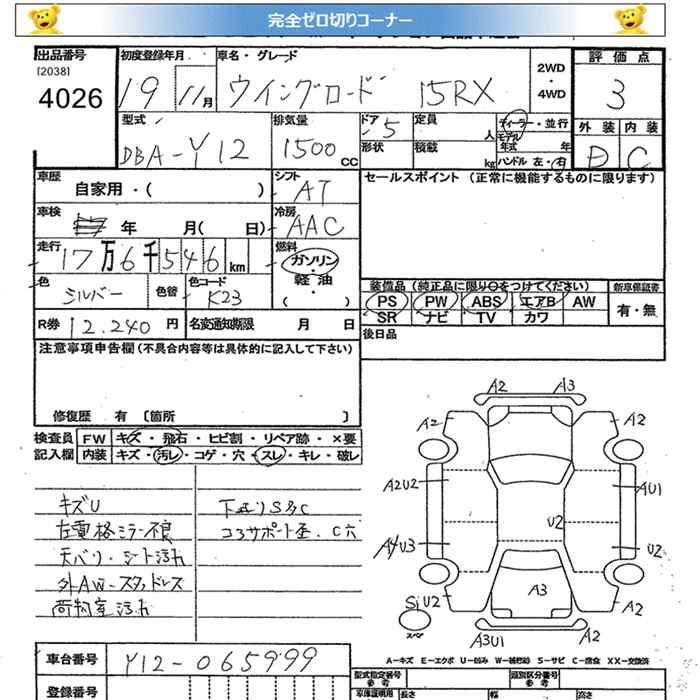 完全ゼロ切りコーナー
出品番号 初度登録年月 車名・グレード 2WD・4WD 評価点
[2038]
4026 19 11月 ウイングロード 15RX 3
型式 排気量 ドア 5 定員 人 ディーラー・並行 外装 内装
DBA-Y12 1500cc 形状 積載 kg モデル年式 年 D C
ハンドル 左・右
車歴 自家用・( ) シフト AT セールスポイント (正常に機能するものに限ります)
車検 年 月( 日) 冷房 AAC
走行 17万6千546km 燃料 ガソリン・軽油・( )
色 シルバー 色替 色コード K23 装備品(純正品に限り○をつけてください) 新車保証書
PS PW ABS エアB AW 有・無
SR ナビ TV カワ
R券 12.240円 名変通知期限 月 日 後日品
注意事項申告欄(不具合内容等は具体的に記入して下さい)
修復歴 有 〔箇所 〕
検査員 FW キズ・飛石・ヒビ割・リペア跡・×要
記入欄 内装 キズ・汚レ・コゲ・穴・スレ・キレ・破レ
キズU 下廻りSあC
左電格ミラー不良 コアサポート歪.C穴
天バリ・シート汚れ
外AW-スタッドレス
荷物室汚れ
A2 A3
A2 A2
A2U2 AU1
U2
A4U3 U2
A3
SiU2 A2
スペア
A3U1 A2
A-キズ E-エクボ U-凹み W-補修跡 S-サビ C-腐食 XX-交換済
車台番号 Y12-065999 型式指定番号 参考 類別区分番号 参考
登録番号 車庫証明用 長さ 幅 高さ